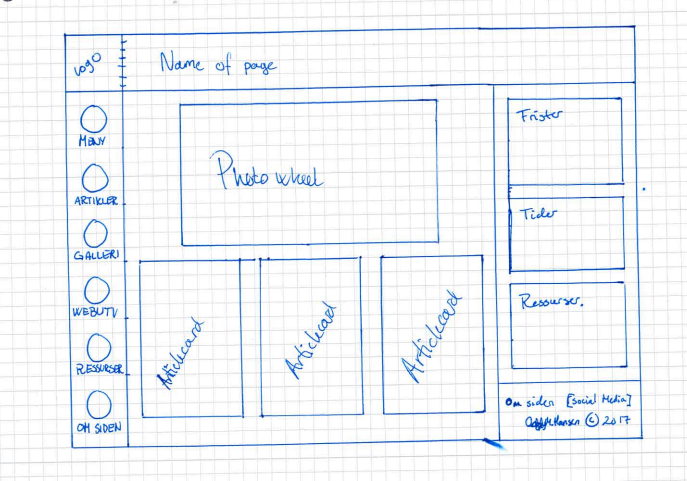 Logo
Name of page
MENY
ARTIKLER
GALLERI
WEBUTV
RESSURSER
OM SIDEN
Photo wheel
Articlecard
Articlecard
Articlecard
Frister
Tider
Ressurser.
Om siden [Social Media]
Hansen © 2017